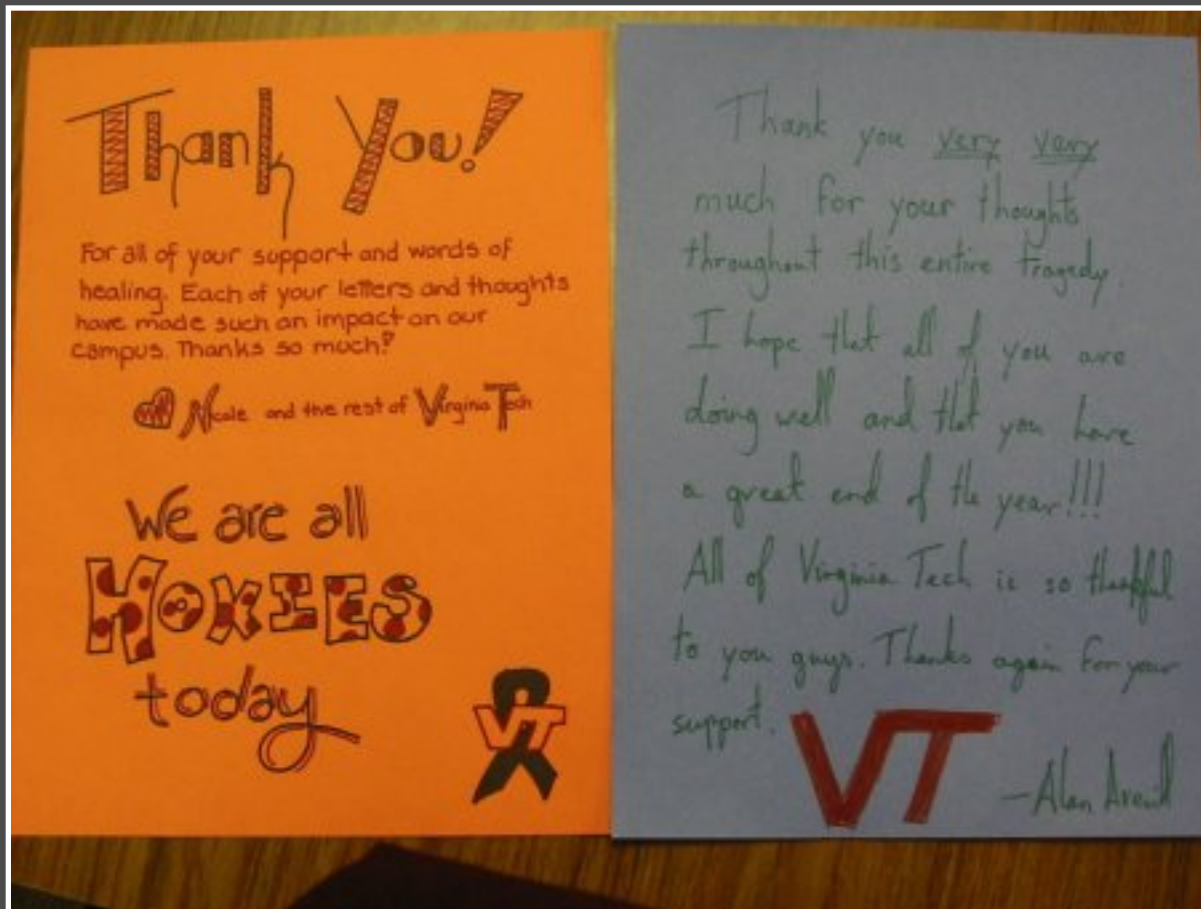 Thank You!
For all of your support and words of
healing. Each of your letters and thoughts
have made such an impact on our
campus. Thanks so much!
Nicole and the rest of Virginia Tech
We are all
HOKIES
today
VT
Thank you very very
much for your thoughts
throughout this entire tragedy.
I hope that all of you are
doing well and that you have
a great end of the year!!!
All of Virginia Tech is so thankful
to you guys. Thanks again for your
support.
VT
-Alan